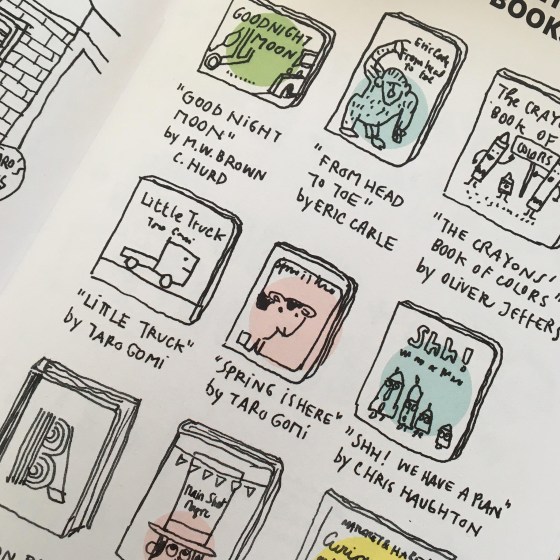 BOOK
GOODNIGHT
MOON
"GOOD NIGHT
MOON"
by M.W. BROWN
C. HURD
Eric Carle
From Head
to Toe
"FROM HEAD
TO TOE"
by ERIC CARLE
The CRAYONS'
BOOK OF
COLORS
"THE CRAYONS'
BOOK OF COLORS
by OLIVER JEFFERS
Little Truck
Taro Gomi
"LITTLE TRUCK"
by TARO GOMI
"SPRING iS HERE"
by TARO GOMI
Shh!
"SHH! WE HAVE A PLAN"
by CHRIS HAUGHTON
MARGRET & HA
Curious